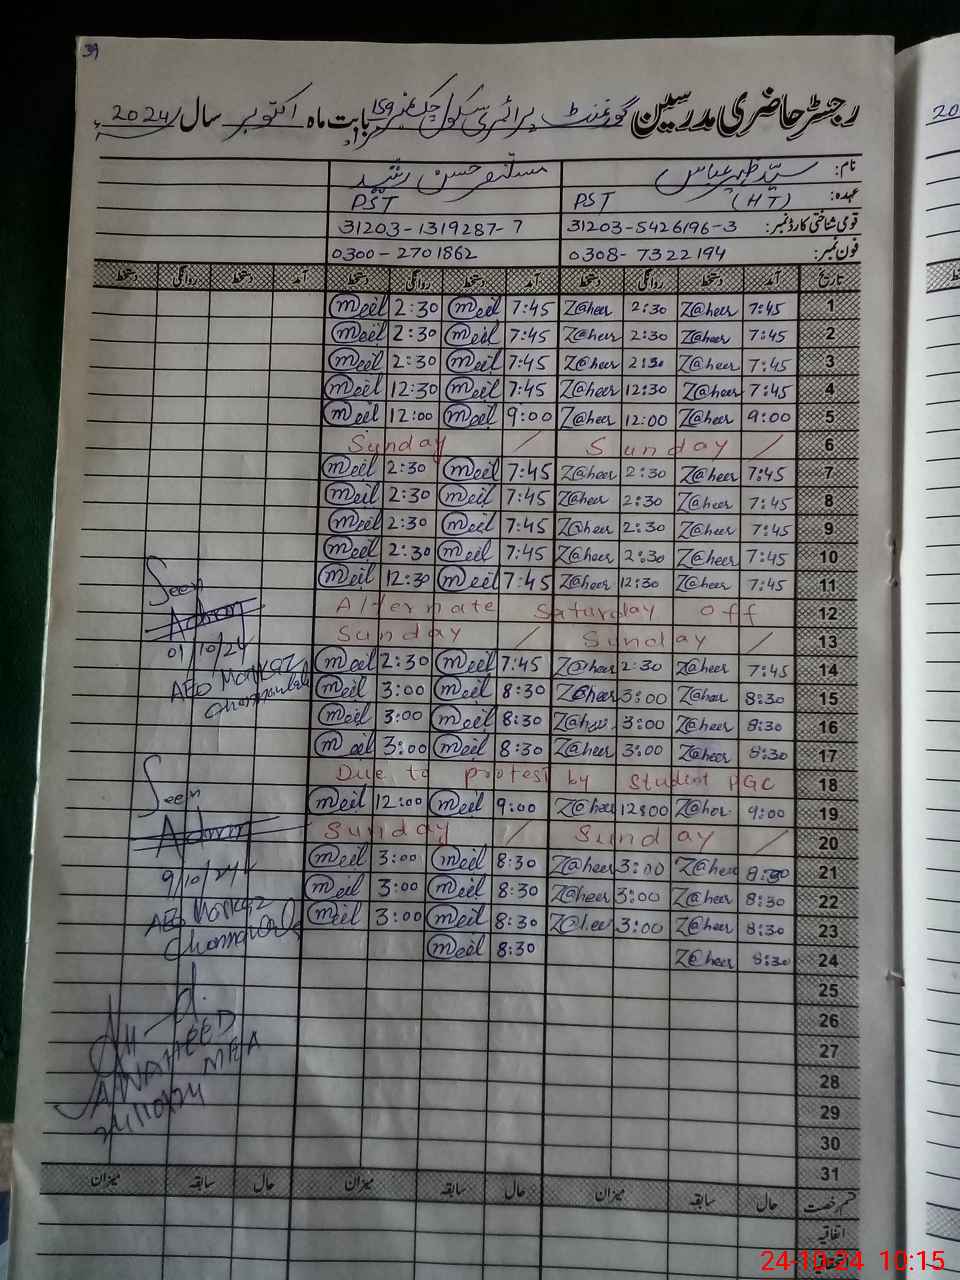 39
رجسٹر حاضری مدرسین گورنمنٹ پرائمری سکول چک نمبر 159 بابت ماہ اکتوبر سال 2024ء
نام: سید ظہیر عباس حسن رشید
عہدہ: (HT) PST PST
قومی شناختی کارڈ نمبر: 31203-5426196-3 31203-1319287-7
فون نمبر: 0308-7322194 0300-2701862
تاریخ آمد دستخط روانگی دستخط آمد دستخط روانگی دستخط آمد دستخط روانگی دستخط
1 7:45 Z@heer 2:30 Z@heer 7:45 meel 2:30 meel
2 7:45 Z@heer 2:30 Z@heer 7:45 meel 2:30 meel
3 7:45 Z@heer 2:30 Z@heer 7:45 meel 2:30 meel
4 7:45 Z@heer 12:30 Z@heer 7:45 meel 12:30 meel
5 9:00 Z@heer 12:00 Z@heer 9:00 meel 12:00 meel
6 Sunday / Sunday /
7 7:45 Z@heer 2:30 Z@heer 7:45 meel 2:30 meel
8 7:45 Z@heer 2:30 Z@heer 7:45 meel 2:30 meel
9 7:45 Z@heer 2:30 Z@heer 7:45 meel 2:30 meel
10 7:45 Z@heer 2:30 Z@heer 7:45 meel 2:30 meel
11 7:45 Z@heer 12:30 Z@heer 7:45 meel 12:30 meel
12 Alternate Saturday off
13 Sunday / Sunday /
14 7:45 Z@heer 2:30 Z@heer 7:45 meel 2:30 meel
15 8:30 Z@heer 3:00 Z@heer 8:30 meel 3:00 meel
16 8:30 Z@heer 3:00 Z@heer 8:30 meel 3:00 meel
17 8:30 Z@heer 3:00 Z@heer 8:30 meel 3:00 meel
18 Due to protest by Student PGC
19 9:00 Z@heer 12:00 Z@heer 9:00 meel 12:00 meel
20 Sunday / Sunday /
21 8:30 Z@heer 3:00 Z@heer 8:30 meel 3:00 meel
22 8:30 Z@heer 3:00 Z@heer 8:30 meel 3:00 meel
23 8:30 Z@heer 3:00 Z@heer 8:30 meel 3:00 meel
24 8:30 Z@heer 8:30 meel
25
26
27
28
29
30
31
Seen
01/10/24
AEO Markaz
Seen
9/10/24
AEO Markaz
WAHEED
MEA
24/10/24
قسم رخصت حال سابقہ میزان حال سابقہ میزان حال سابقہ میزان
اتفاقیہ
20
24-10-24 10:15